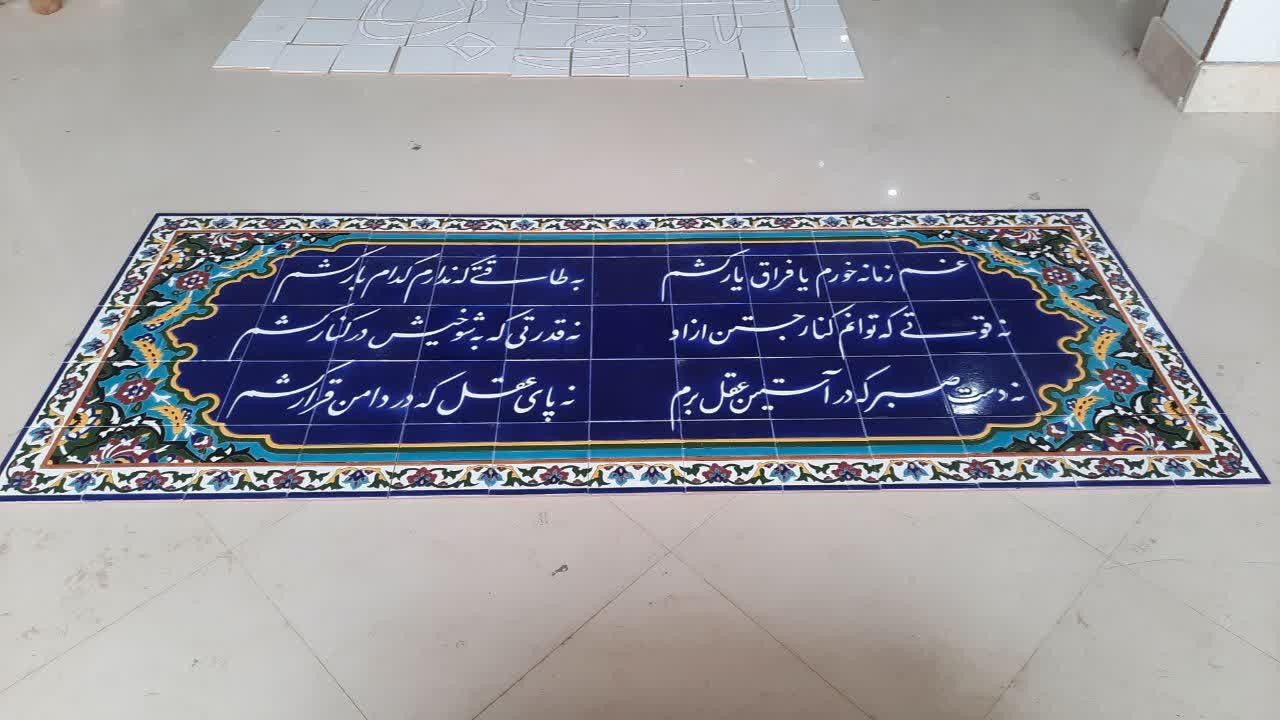 غم زمانه خورم یا فراق یار کشم به طاقتی که ندارم کدام بار کشم
نه قوتی که توانم کنار جستن از او نه قدرتی که به شوخیش در کنار کشم
نه دست صبر که در آستین عقل برم نه پای عقل که در دامن قرار کشم